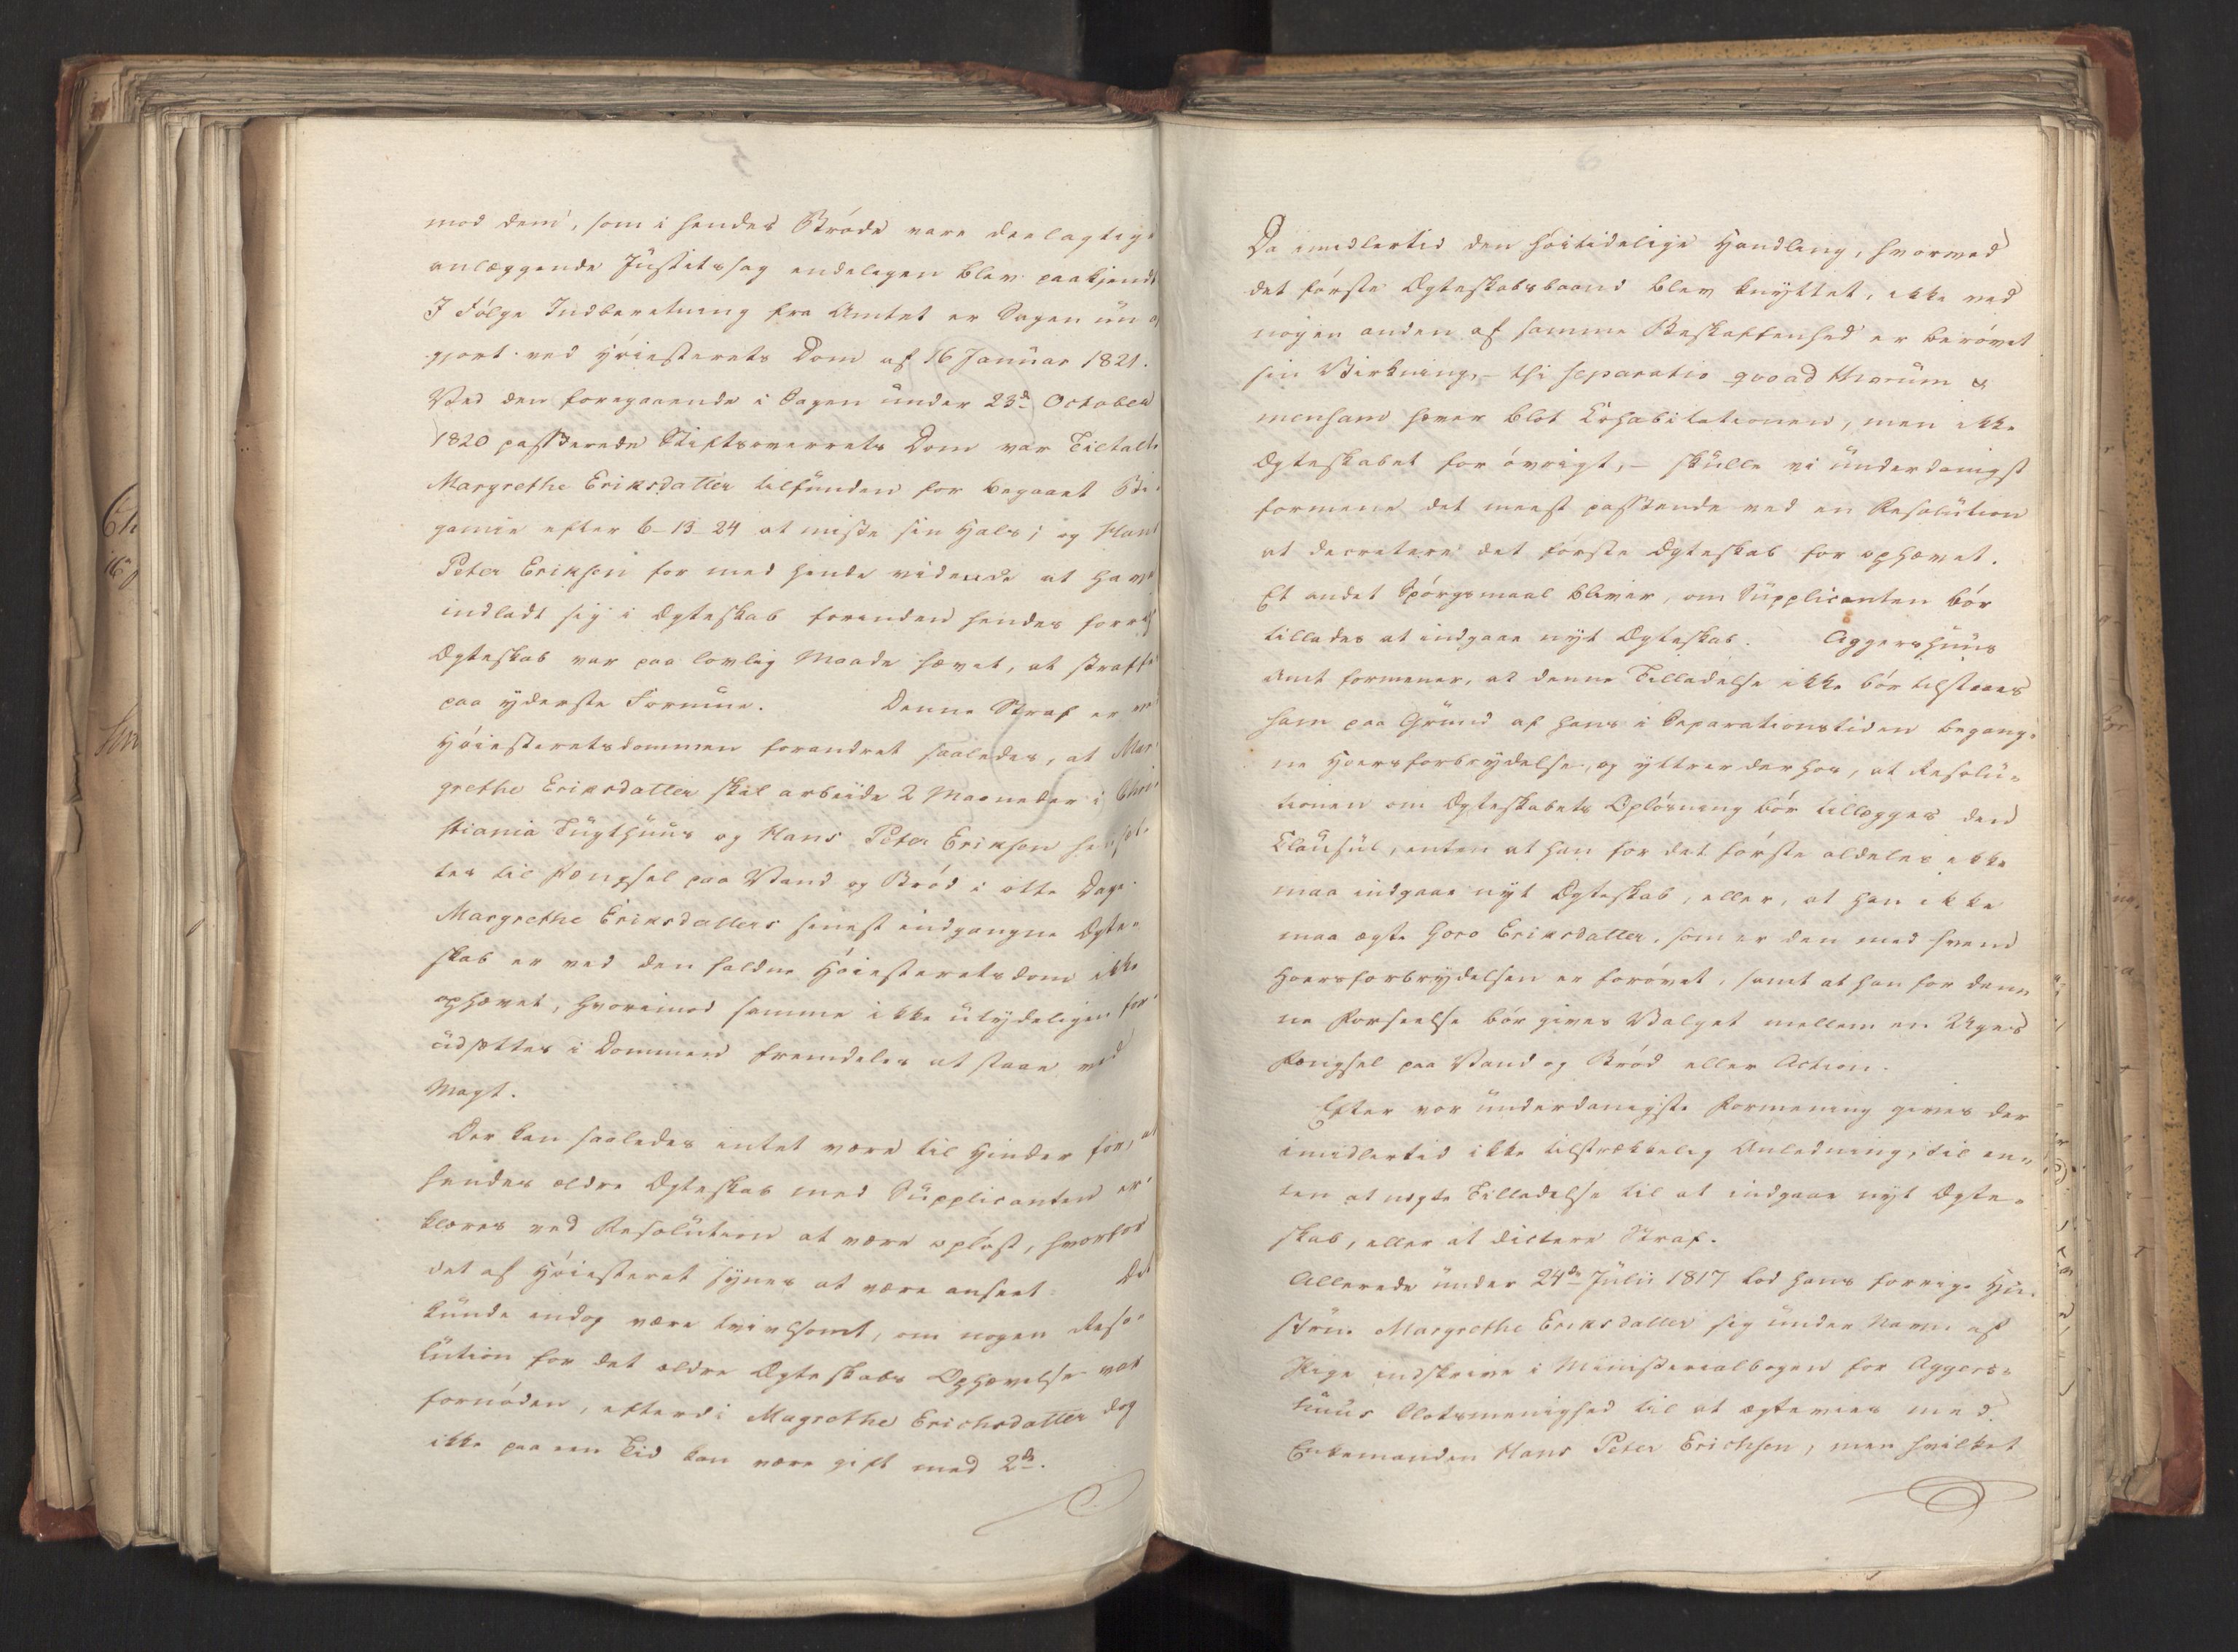 mod dem, som i hendes Brøde vare deelagtige
anlæggende Justitssag endeligen blev paakjendt
I Følge Indberetning fra Amtet er Sagen nu af
gjort ved Høiesterets Dom af 16 Januar 1821.
Ved den foregaaende i Sagen under 23de October
1820 passerede Stiftsoverrets Dom var Tiltalte
Margrethe Eriksdatter tilfunden for begaaet Bi-
gamie efter 6-13-24 at miste sin Hals; og Hans
Peter Eriksen for med hende vidende at have
indladt sig i Ægteskab forinden hendes forrige
Ægteskab var paa lovlig Maade hævet, at straffes
paa yderste Formue. Denne Straf er ved
Høiesteretsdommen forandret saaledes, at Mar-
grethe Eriksdatter skal arbeide 2 Maaneder i Chri-
stiania Tugthuus og Hans Peter Eriksen hensæt-
tes til Fængsel paa Vand og Brød i otte Dage.
Margrethe Eriksdatters senest indgangne Ægte-
skab er ved den faldne Høiesteretsdom ikke
ophævet, hvorimod samme ikke utydeligen for-
udsættes i Dommen fremdeles at staae ved
Magt.
Der kan saaledes intet være til Hinder for, at
hendes ældre Ægteskab med Supplicanten er-
klæres ved Resolution at være opløst, hvorfor
det af Høiesteret synes at være anseet. Det
kunde endog være tvivlsomt, om nogen Reso-
lution for det ældre Ægteskabs Ophævelse var
fornøden, efterdi Magrethe Erichsdatter dog
ikke paa een Tid kan være gift med 2de.
Da imidlertid den høitidelige Handling, hvorved
det første Ægteskabsbaand blev knyttet, ikke ved
nogen anden af samme Beskaffenhed er berøvet
sin Virkning, - thi separatio qvoad thorum &
mensam hæver blot Cohabitationen, men ikke
Ægteskabet for øvrigt, - skulle vi underdanigst
formene det meest passende ved en Resolution
at decretere det første Ægteskab for ophævet.
Et andet Spørgsmaal bliver, om Supplicanten bør
tillades at indgaae nyt Ægteskab. Aggershuus
Amt formener, at denne Tilladelse ikke bør tilstaaes
ham paa Grund af hans i Separationstiden begang-
ne Hoersforbrydelse, og yttrer derhos, at Resolu-
tionen om Ægteskabets Opløsning bør tillægges den
Clausul, enten at han for det første aldeles ikke
maa indgaae nyt Ægteskab, eller, at han ikke
maa ægte Goro Eriksdatter, som er den med hvem
Hoersforbrydelsen er forøvet, samt at han for den-
ne Forseelse bør gives Valget mellem en Uges
Fængsel paa Vand og Brød eller Action.
Efter vor underdanigste Formening gives der
imidlertid ikke tilstrækkelig Anledning, til en-
ten at negte Tilladelse til at indgaae nyt Ægte-
skab, eller at dictere Straf.
Allerede under 24de Julii 1817 lod hans forrige Hu-
struе Margrethe Eriksdatter sig under Navn af
Pige indskrive i Ministerialbogen for Aggers-
huus Slotsmenighed til at ægtevies med
Enkemanden Hans Peter Erichsen, men hvilket